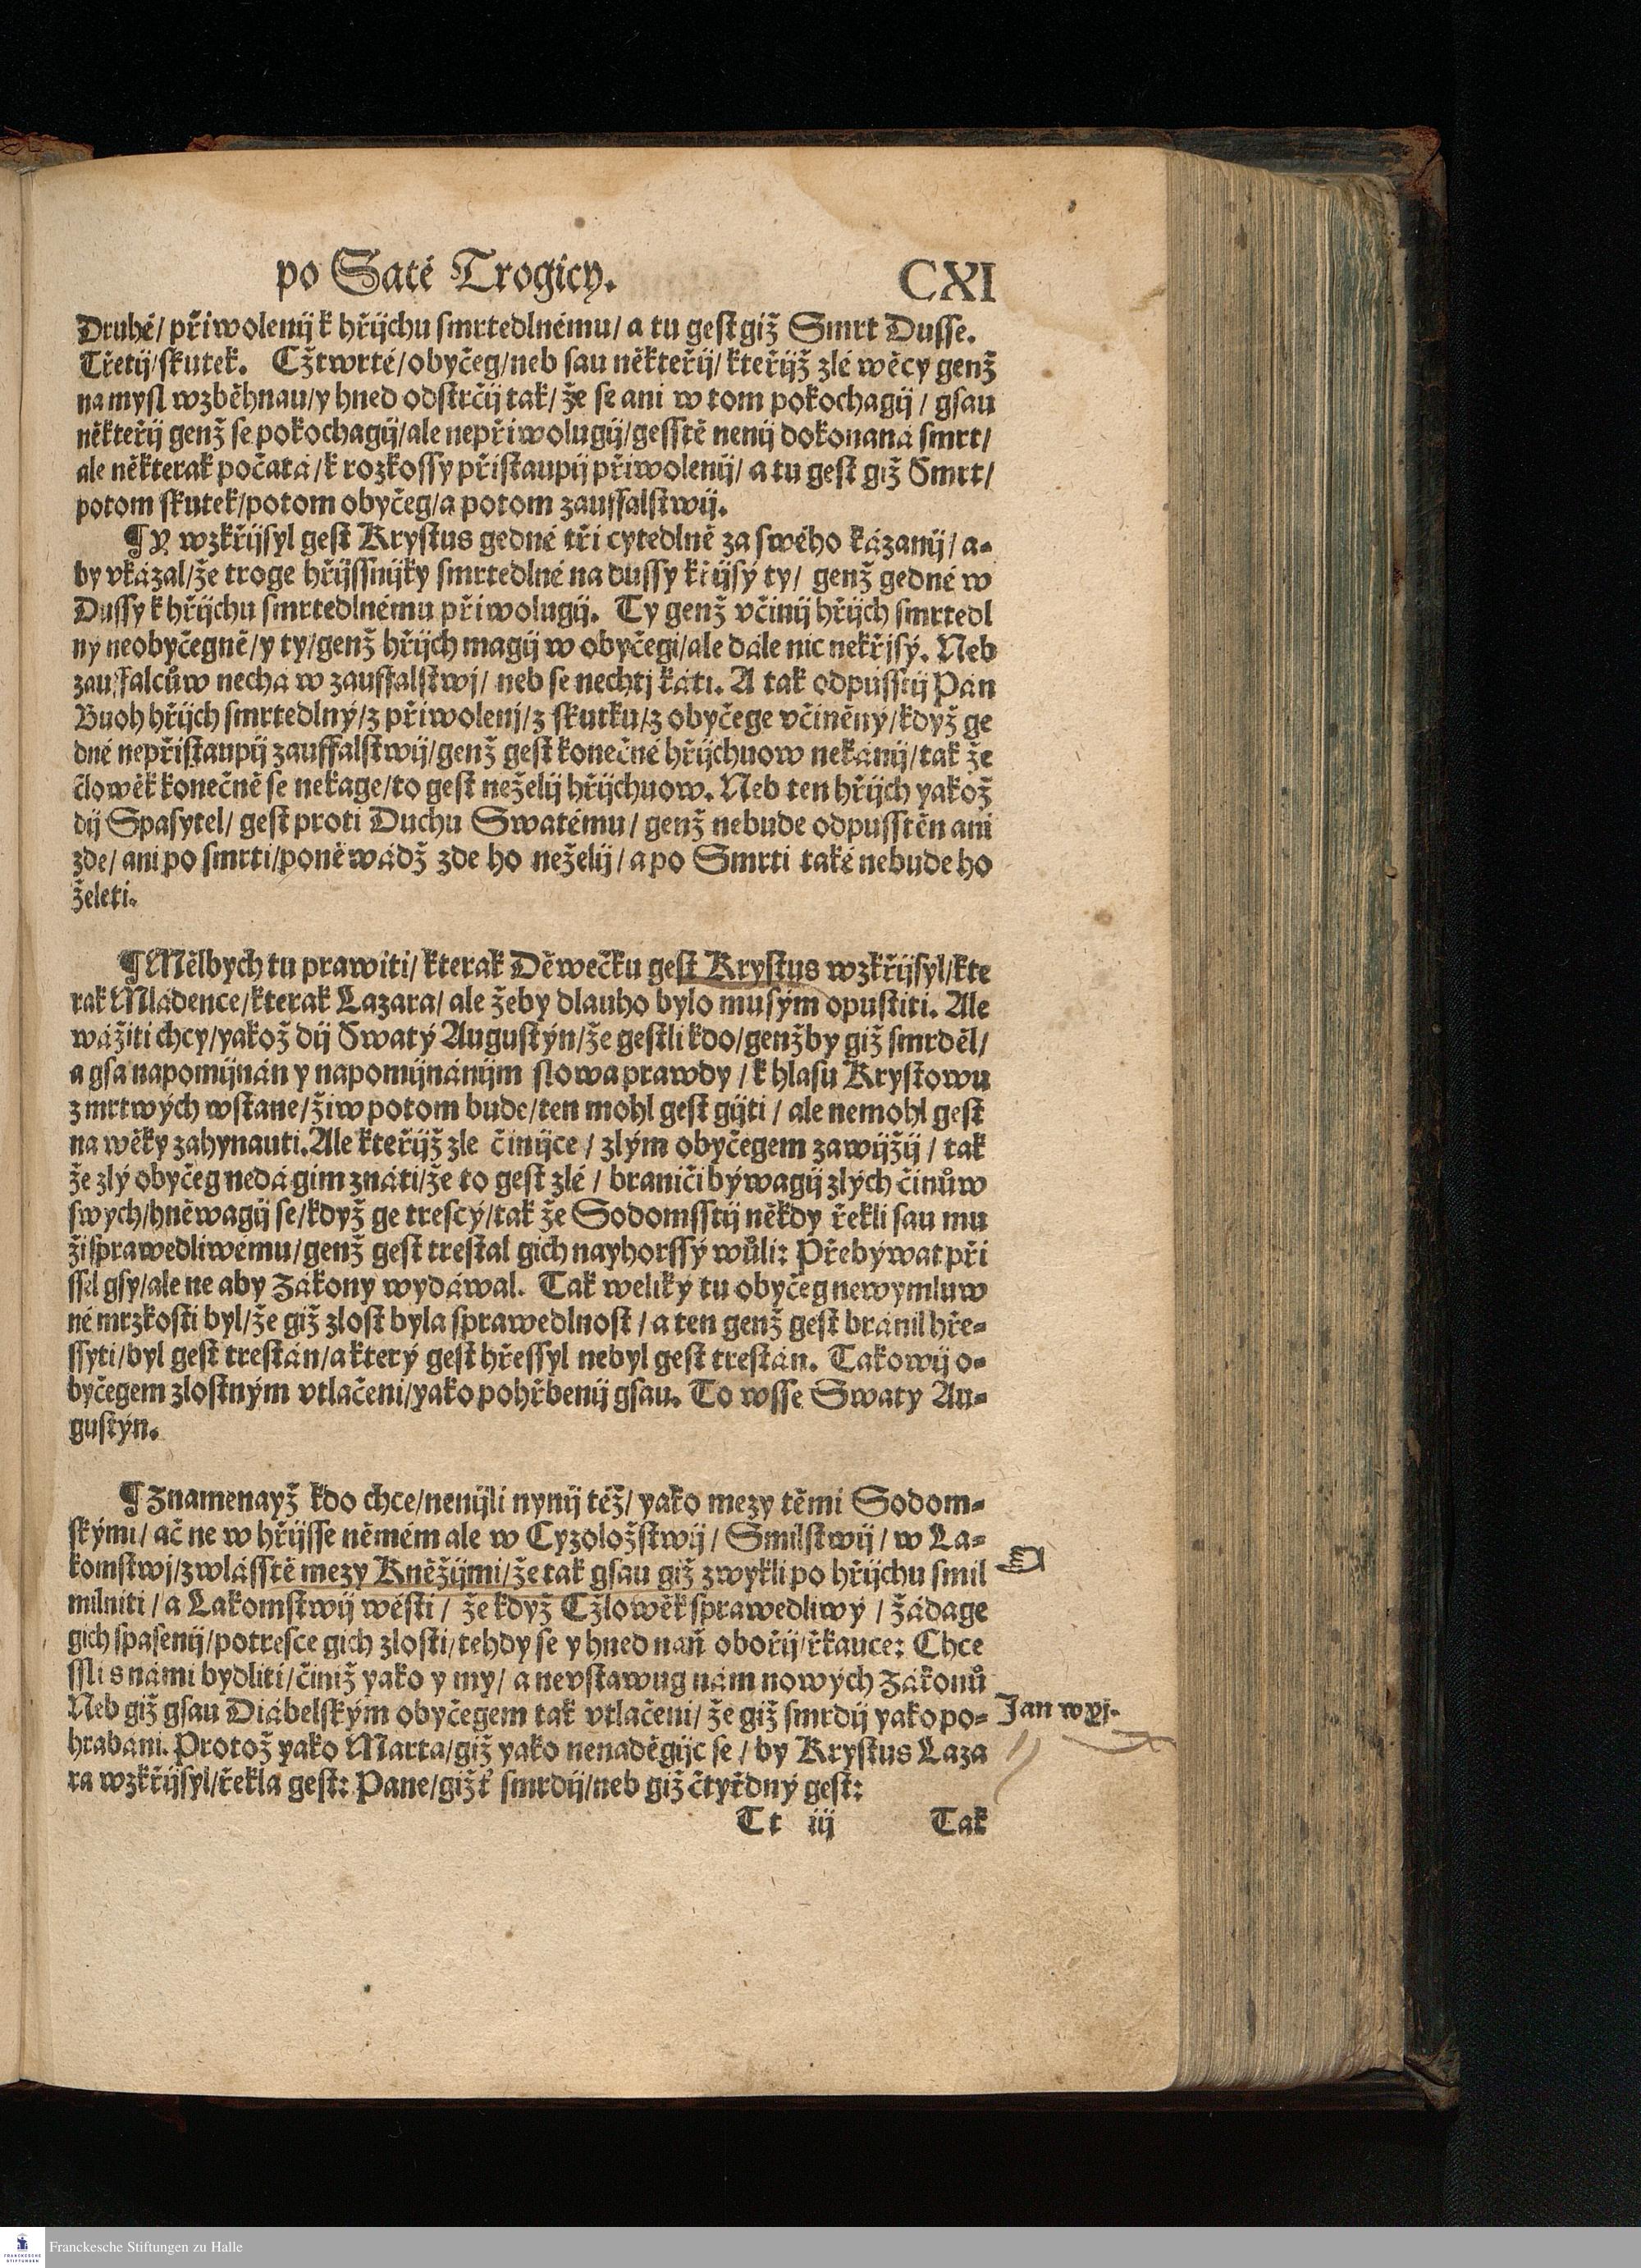 po Saté Trogicy. CXI
Druhé/ přiwolenij k hřijchu smrtedlnému/ a tu gest giž Smrt Dusse.
Třetij/skutek. Cžtwrté/obyčeg/neb sau někteřij/kteřijž zlé wěcy genž
na mysl wzběhnau/y hned odstrčij tak/ že se ani w tom pokochagij / gsau
někteřij genž se pokochagij/ale nepřiwolugij/gesstě nenij dokonaná smrt/
ale některak počatá/k rozkossy přistaupij přiwolenij/ a tu gest giž Smrt/
potom skutek/potom obyčeg/a potom zauffalstwij.
¶Y wzkřijsyl gest Krystus gedné tři cytedlně za swého kázanij/ a=
by vkázal/že troge hřijssnijky smrtedlné na dussy křijsý ty/ genž gedné w
Dussy k hřijchu smrtedlnému přiwolugij. Ty genž včinij hřijch smrtedl
ny neobyčegně/y ty/genž hřijch magij w obyčegi/ale dále nic nekřjsý. Neb
zauffalcůw nechá w zauffalstwj/ neb se nechtj káti. A tak odpusstij Pán
Buoh hřijch smrtedlný/z přiwolenj/z skutku/z obyčege včiněný/když ge
dné nepřistaupij zauffalstwij/genž gest konečné hřijchuow nekánij/tak že
člowěk konečně se nekage/to gest neželij hřijchuow. Neb ten hřijch yakož
dij Spasytel/ gest proti Duchu Swatému/ genž nebude odpusstěn ani
zde/ ani po smrti/poněwádž zde ho neželij/a po Smrti také nebude ho
želeti.
¶Mělbych tu prawiti/ kterak Děwečku gest Krystus wzkřijsyl/kte
rak Mládence/kterak Lazara/ ale žeby dlauho bylo musým opustiti. Ale
wážiti chcy/yakož dij Swatý Augustýn/že gestli kdo/genžby giž smrděl/
a gsa napomijnán y napomijnánijm slowa prawdy / k hlasu Krystowu
z mrtwých wstane/žiw potom bude/ten mohl gest gijti / ale nemohl gest
na wěky zahynauti. Ale kteřijž zle činijce / zlým obyčegem zawijžij / tak
že zlý obyčeg nedá gim znáti/že to gest zlé / braniči býwagij zlých činůw
swych/hněwagij se/když ge trescý/tak že Sodomsstij někdy řekli sau mu
ži sprawedliwému/genž gest trestal gich nayhorssý wůli: Přebýwat při
ssel gsy/ale ne aby Zákony wydáwal. Tak weliký tu obyčeg newymluw
né mrzkosti byl/že giž zlost byla sprawedlnost / a ten genž gest bránil hře=
ssyti/byl gest trestán/a který gest hřessyl nebyl gest trestán. Takowij o=
byčegem zlostným vtlačeni/yako pohřbenij gsau. To wsse Swaty Au=
gustýn.
¶Znamenayž kdo chce/nenijli nynij též/ yako mezy těmi Sodom=
skými/ ač ne w hřijsse němém ale w Cyzoložstwij/ Smilstwij/ w La=
komstwj/zwlásstě mezy Kněžijmi/že tak gsau giž zwykli po hřijchu smil
milniti / a Lakomstwij wésti / že když Cžlowěk sprawedliwý / žádage
gich spasenij/potresce gich zlosti/tehdy se y hned naň obořij/řkauce: Chce
ssli s námi bydliti/činiž yako y my/ a nevstawug nám nowých Zákonů
Neb giž gsau Diábelským obyčegem tak vtlačeni/ že giž smrdij yako po=
Jan w xj.
hrabani. Protož yako Marta/giž yako nenaděgijc se / by Krystus Laza
ra wzkřijsyl/řekla gest: Pane/gižť smrdij/neb giž čtyřdný gest:
Tt iij Tak
FRANCKESCHE STIFTUNGEN
Franckesche Stiftungen zu Halle